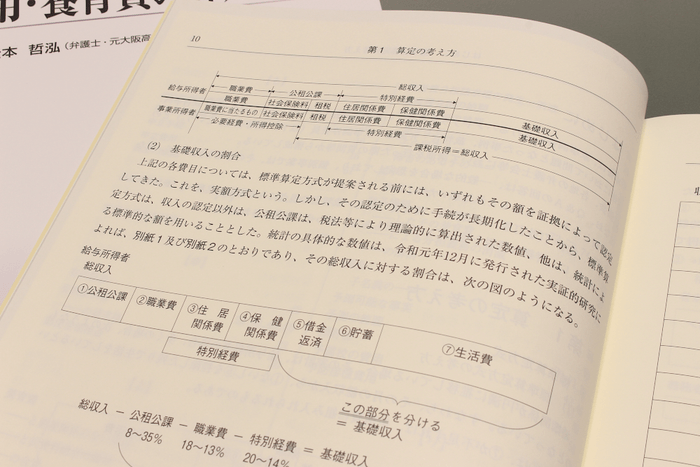 本 哲泓(弁護士・元大阪高
10
第1 算定の考え方
総収入
職業費 公租公課 特別経費
給与所得者 職業費 社会保険料 租税 住居関係費 保健関係費 基礎収入
事業所得者 職業費に当たるもの 社会保険料 租税 住居関係費 保健関係費 基礎収入
必要経費・所得控除 特別経費
課税所得=総収入
(2) 基礎収入の割合
上記の各費目については、標準算定方式が提案される前には、いずれもその額を証拠によって認定
してきた。これを、実額方式という。しかし、その認定のために手続が長期化したことから、標準算
定方式は、収入の認定以外は、公租公課は、税法等により理論的に算出された数値、他は、統計によ
る標準的な額を用いることとした。統計の具体的な数値は、令和元年12月に発行された実証的研究に
よれば、別紙1及び別紙2のとおりであり、その総収入に対する割合は、次の図のようになる。
給与所得者
総収入
①公租公課 ②職業費 ③住居関係費 ④保健関係費 ⑤借金返済 ⑥貯蓄 ⑦生活費
特別経費
この部分を分ける
=基礎収入
総収入 − 公租公課 − 職業費 − 特別経費 = 基礎収入
8~35% 18~13% 20~14%